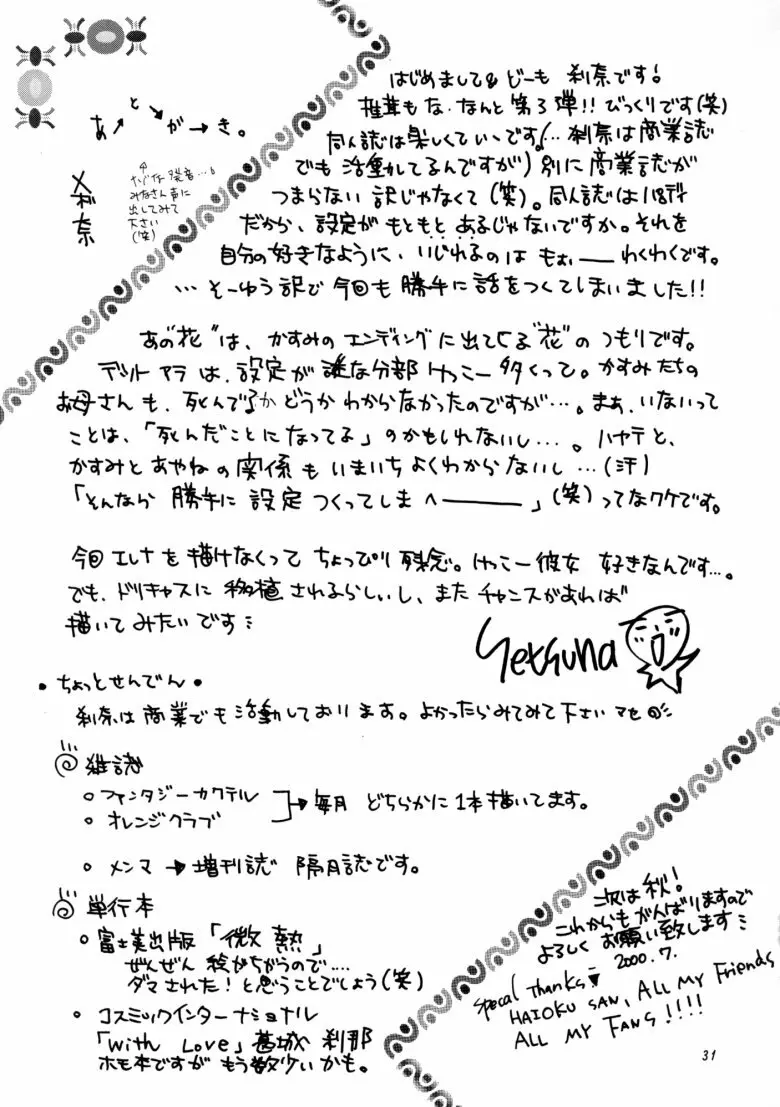 あ↗と↘が→き。
刹奈
みなさん声に
出してみて
下さい
(笑)
はじめまして&どーも 刹奈です!
椎茸もな、なんと第3弾!! びっくりです(笑)
同人誌は楽しくていいです!(… 刹奈は商業誌
でも活動してるんですが)別に商業誌が
つまらない訳じゃなくて(笑)。同人誌はパロディ
だから、設定がもともとあるじゃないですか。それを
自分の好きなように、いじれるのはもぉーわくわくです。
…そーゆう訳で今回も勝手に話をつくてしまいました!!
あの"花"は、かすみのエンディングに出てくる"花"のつもりです。
デットアラは、設定が謎な分部けっこー多くって。かすみたちの
お母さんも、死んでるかどうかわからなかったのですが…。まぁ、いないって
ことは、「死んだことになってる」のかもしれないし…。ハヤテと、
かすみとあやねの関係もいまいちよくわからないし…(汗)
「そんなら勝手に設定つくってしまへー」(笑)ってなワケです。
今回エレナを描けなくってちょっぴり残念。けっこー彼女好きなんです…。
でも、ドリキャスに移植されるらしいし、またチャンスがあれば
描いてみたいです
Setsuna
・ちょっとせんでん・
刹奈は商業でも活動しております。よかったらみてみて下さいマセ
雑誌
○ファンタジーカクテル
○オレンジクラブ
→毎月どちらかに1本描いてます。
○メンマ→増刊誌 隔月誌です。
単行本
○富士美出版「微熱」
ぜんぜん絵がちがうので…
ダマされた!と思うことでしょう(笑)
○コスミックインターナショナル
「With Love」葛城 刹那
ホモ本ですがもう数少いかも。
次は秋!
これからもがんばりますので
よろしくお願い致します
2000.7.
Specal Thanks
HAIOKU SAN, ALL MY Friends
ALL MY FANS!!!!
31